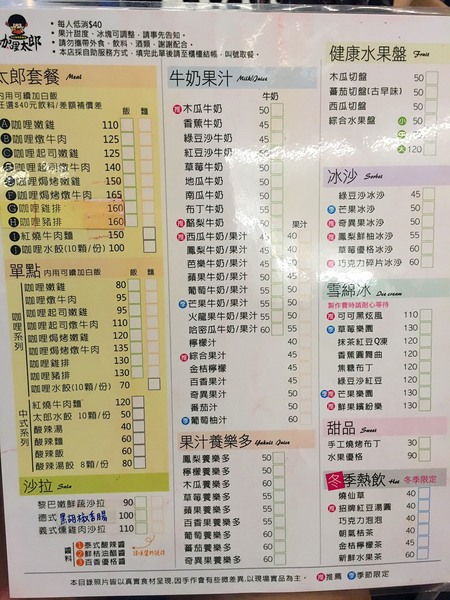 咖哩太郎
• 每人低消$40
• 果汁甜度、冰塊可調整，請事先告知。
• 請勿攜帶外食、飲料、酒類，謝謝配合。
• 本店採自助服務方式，填完此單後請至櫃檯結帳，叫號取餐。
太郎套餐 Meal
內用可續加白飯
任選$40元飲料/差額補價差 飯 麵
A 咖哩嫩雞 110
B 咖哩燉牛肉 125
C 咖哩起司嫩雞 125
D 咖哩起司燉牛肉 140
E 咖哩焗烤嫩雞 150
F 咖哩焗烤燉牛肉 165
G 咖哩雞排 160
H 咖哩豬排 160
I 紅燒牛肉麵 150
咖哩水餃(10顆/份) 100
單點 內用可續加白飯 飯 麵
咖哩系列
咖哩嫩雞 80
咖哩燉牛肉 95
咖哩起司嫩雞 95
咖哩起司燉牛肉 110
咖哩焗烤嫩雞 120
咖哩焗烤燉牛肉 135
咖哩雞排 130
咖哩豬排 130
咖哩水餃(10顆/份) 70
中式系列
紅燒牛肉麵 120
太郎水餃 10顆/份 50
酸辣湯 40
酸辣麵 60
酸辣飯 60
酸辣湯餃 8顆/份 80
沙拉 Sala
黎巴嫩鮮蔬沙拉 90
德式黑胡椒香腸 100
義式燻雞肉沙拉 110
醬料
1 泰式酸辣醬
2 鮮桔油醋醬
3 百香優格醬
牛奶果汁 Milk/Juice
牛奶
推 木瓜牛奶 50
香蕉牛奶 45
綠豆沙牛奶 50
紅豆沙牛奶 50
草莓牛奶 50
地瓜牛奶 50
南瓜牛奶 50
布丁牛奶 55
推 酪梨牛奶 50 果汁
推 西瓜牛奶/果汁 40
鳳梨牛奶/果汁
芭樂牛奶/果汁
蘋果牛奶/果汁
葡萄牛奶/果汁
季 芒果牛奶/果汁
火龍果牛奶/果汁
哈密瓜牛奶/果汁 60
檸檬汁 40
推 綜合果汁 45
金桔檸檬 40
百香果汁 45
奇異果汁 50
蕃茄汁 50
季 葡萄柚汁 60
果汁養樂多 Yakult Juice
鳳梨養樂多 50
檸檬養樂多 50
木瓜養樂多
草莓養樂多
蘋果養樂多
百香果養樂多
葡萄養樂多
蕃茄養樂多
金桔養樂多
奇異果養樂多
健康水果盤 Fruit
木瓜切盤 50
蕃茄切盤(古早味) 50
西瓜切盤 50
綜合水果盤 小 50
中
大 120
冰沙 Sorbet
綠豆沙冰沙 45
季 芒果冰沙
推 奇異果冰沙
推 鳳梨鮮柚冰沙 55
草莓優格冰沙 60
推 巧克力碎片冰沙 60
雪綿冰 Ice cream
製作費時請耐心等待
推 可可黑炫風 110
季 草莓樂園 130
抹茶紅豆Q凍 120
香蕉圓舞曲 120
焦糖布丁 120
綠豆沙紅豆 120
季 芒果樂園 130
推 鮮果繽紛樂 130
甜品
手工燒烤布丁 30
水果優格 90
冬季熱飲 Hot 冬季限定
燒仙草 45
推 招牌紅豆湯圓 45
巧克力泡泡 45
朝氣桔茶 45
金桔檸檬茶 45
新鮮水果茶 60
本目錄照片皆以真實食材呈現，因手作會有些微差異，以現場實品為主。 推 推薦 季 季節限定